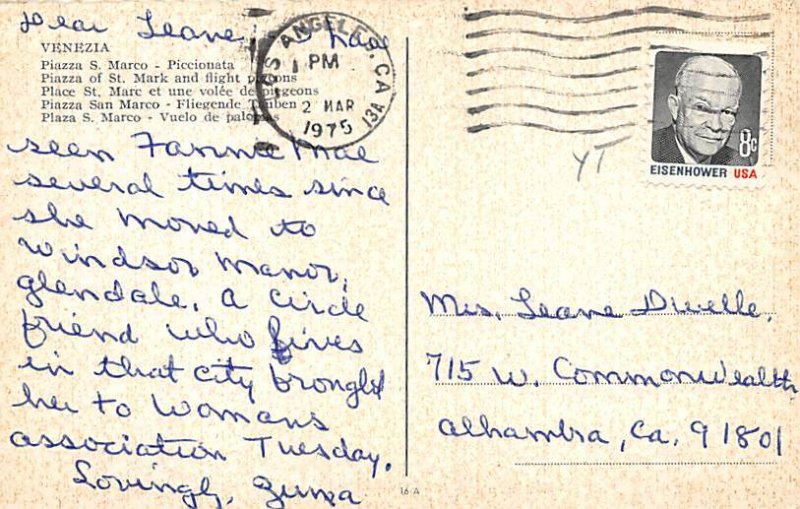 Dear Leane I had
VENEZIA
Piazza S. Marco - Piccionata
Piazza of St. Mark and flight pigeons
Place St. Marc et une volée de pigeons
Piazza San Marco - Fliegende Tauben
Plaza S. Marco - Vuelo de palomas
seen Fannie Mae
several times since
she moved to
Windsor Manor,
Glendale. A circle
friend who lives
in that city brought
her to Womans
association Tuesday.
Lovingly, Zuma
LOS ANGELES, CA
1 PM
2 MAR
1975
13A
8c
EISENHOWER USA
YT
Mrs. Leane Duelle,
715 W. Commonwealth,
Alhambra, Ca. 91801
16 A